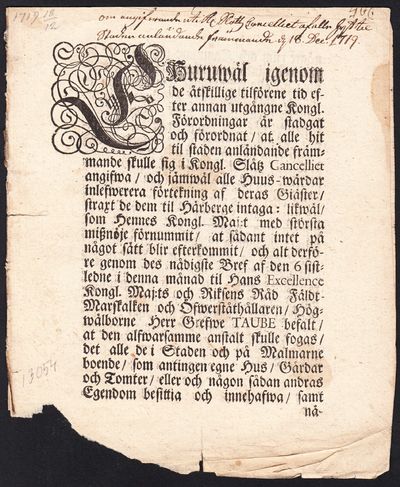 1719 18/12
om angifwande uti Slotts Cancelliet af alla hijt til
Staden anländande främmande d 18 Dec. 1719.
Huruwäl igenom
de åtskillige tilförene tid ef-
ter annan utgångne Kongl.
Förordningar är stadgat
och förordnat / at alle hit
til staden anländande främ-
mande skulle sig i Kongl. Slåtz Cancelliet
angifwa / och jämwäl alle Huus-wärdar
inlefwerera förtekning af deras Giäster /
straxt de dem til Härberge intaga: likwäl /
som Hennes Kongl. Maj:t med största
mißnöje förnummit / at sådant intet på
något sätt blir efterkommit / och alt derfö-
re genom des nådigste Bref af den 6 sist-
ledne i denna månad til Hans Excellence
Kongl. Maj:ts och Riksens Råd Fäldt-
Marskalken och Öfwerståthållaren / Hög-
wälborne Herr Grefwe TAUBE befalt /
at den alfwarsamme anstalt skulle fogas /
det alle de i Staden och på Malmarne
boende / som antingen egne Hus / Gårdar
och Tomter / eller och någon sådan andras
Egendom besittia och innehafwa / samt
nå-
13054